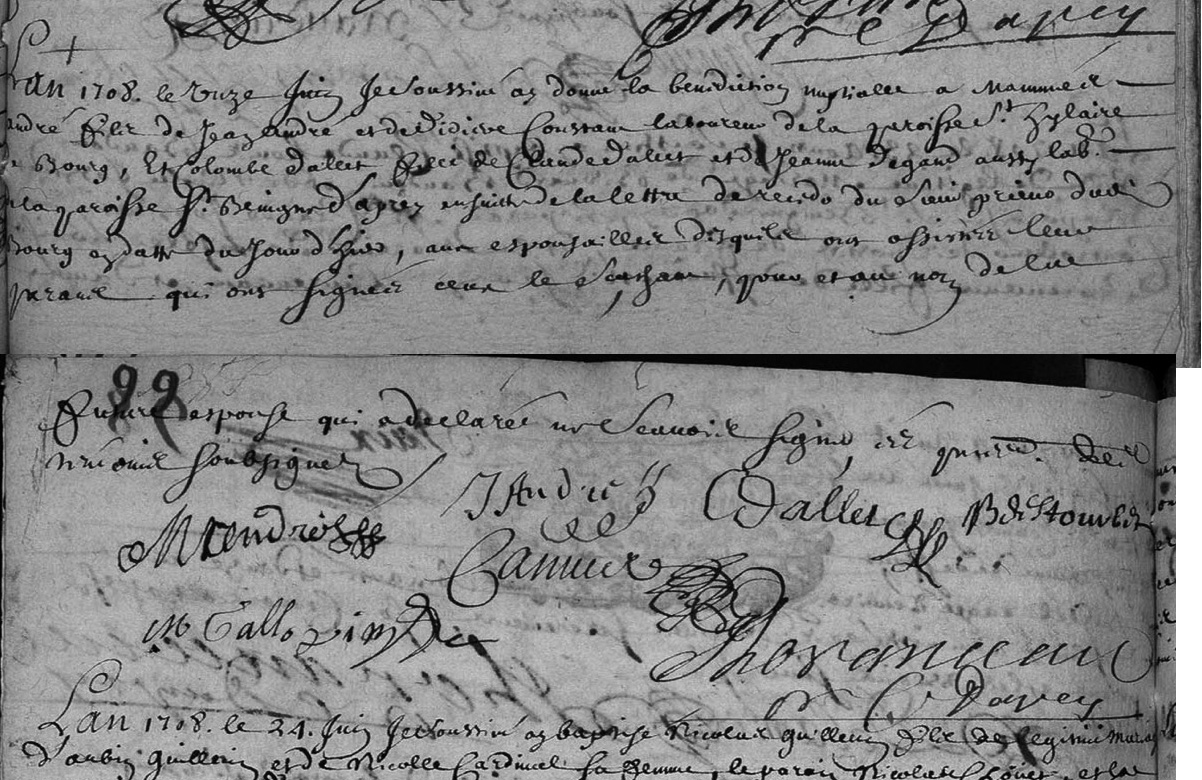 C Davey
Lan 1708. le onze Juin Je soussiné ay donné la benediction nuptialle a Mammer
andré filz de Jean André et de Didiere Constant laboureur de la paroisse St. Hylaire
Bourg, Et Colombe dallet fille de Claude dallet et de Jeanne degand aussy lab.
de la paroisse St. Benigne d'aprey ensuitte de la lettre de recedo du Sieur
Bourg en datte du Jour d'hier, aux espousailles desquilz ont assistéz leur
parans qui ont signéz ceux le sachans, pour et au nom de la
99
future espouse qui a declaréz ne scavoir signer, les
temoins soubsignez
JAndré Cdallet
MAndré
Camus
M Gallo
Thovaneau
C Davey
Lan 1708. le 24. Juin Je soussiné ay baptisé Nicolas Guillemin filz de legitime mariage
D'aubin Guillemin et de Nicolle Cardinal sa femme, le parain Nicolas et la